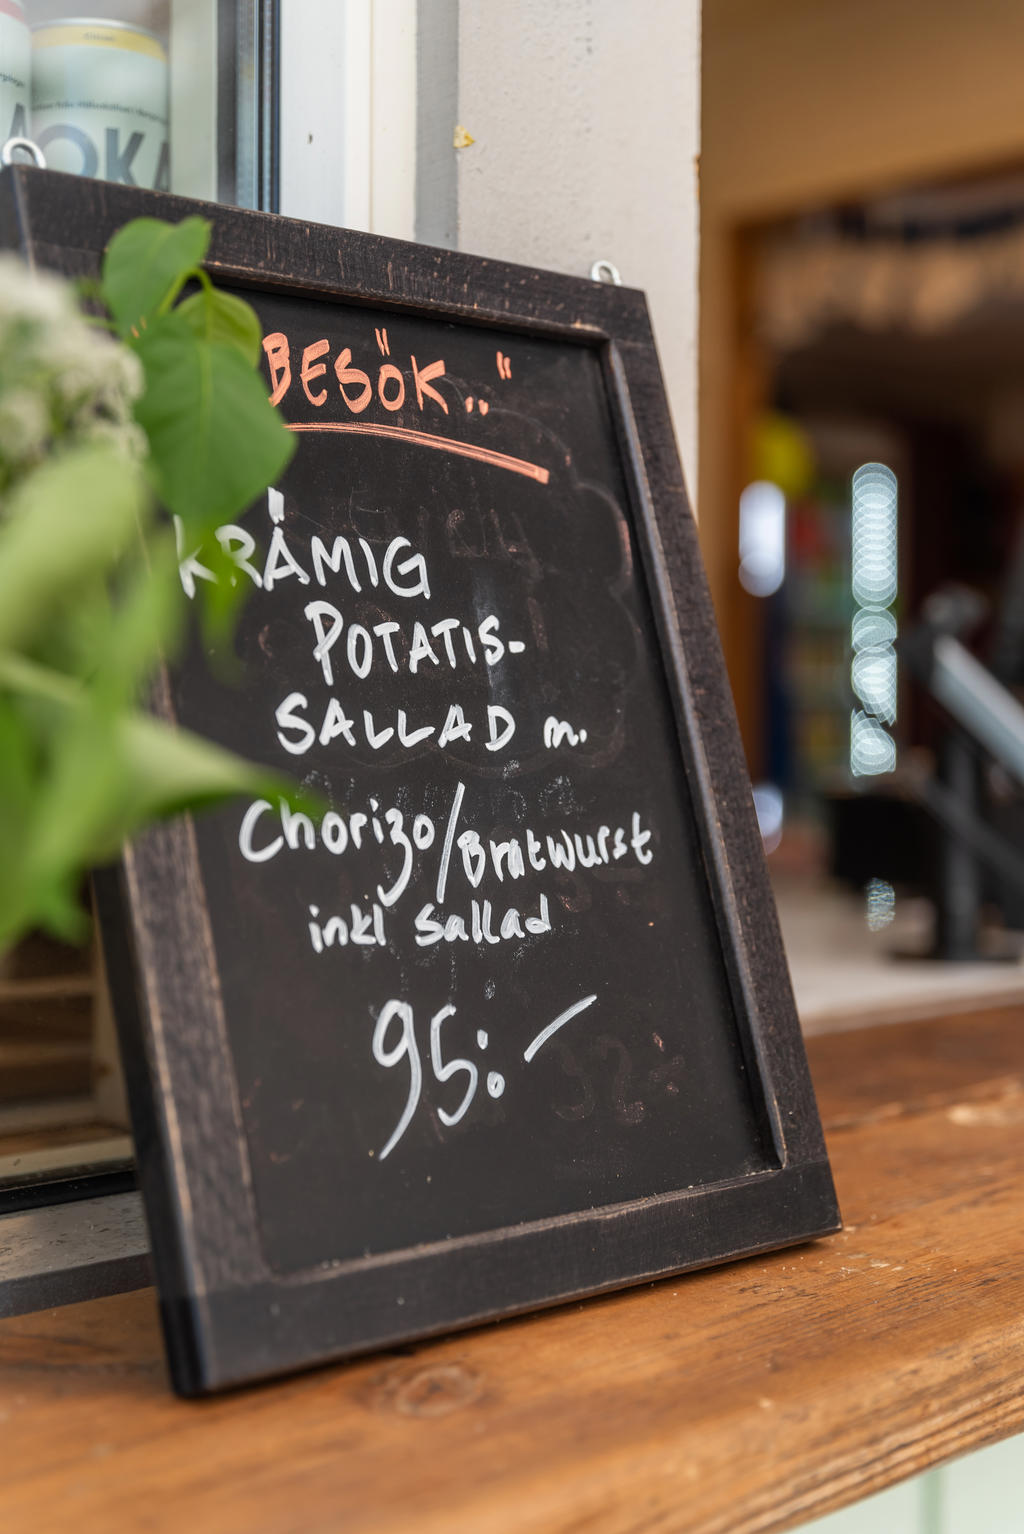 BESÖK.."
KRÄMIG
POTATIS-
SALLAD m.
Chorizo/Bratwurst
inkl Sallad
95:-